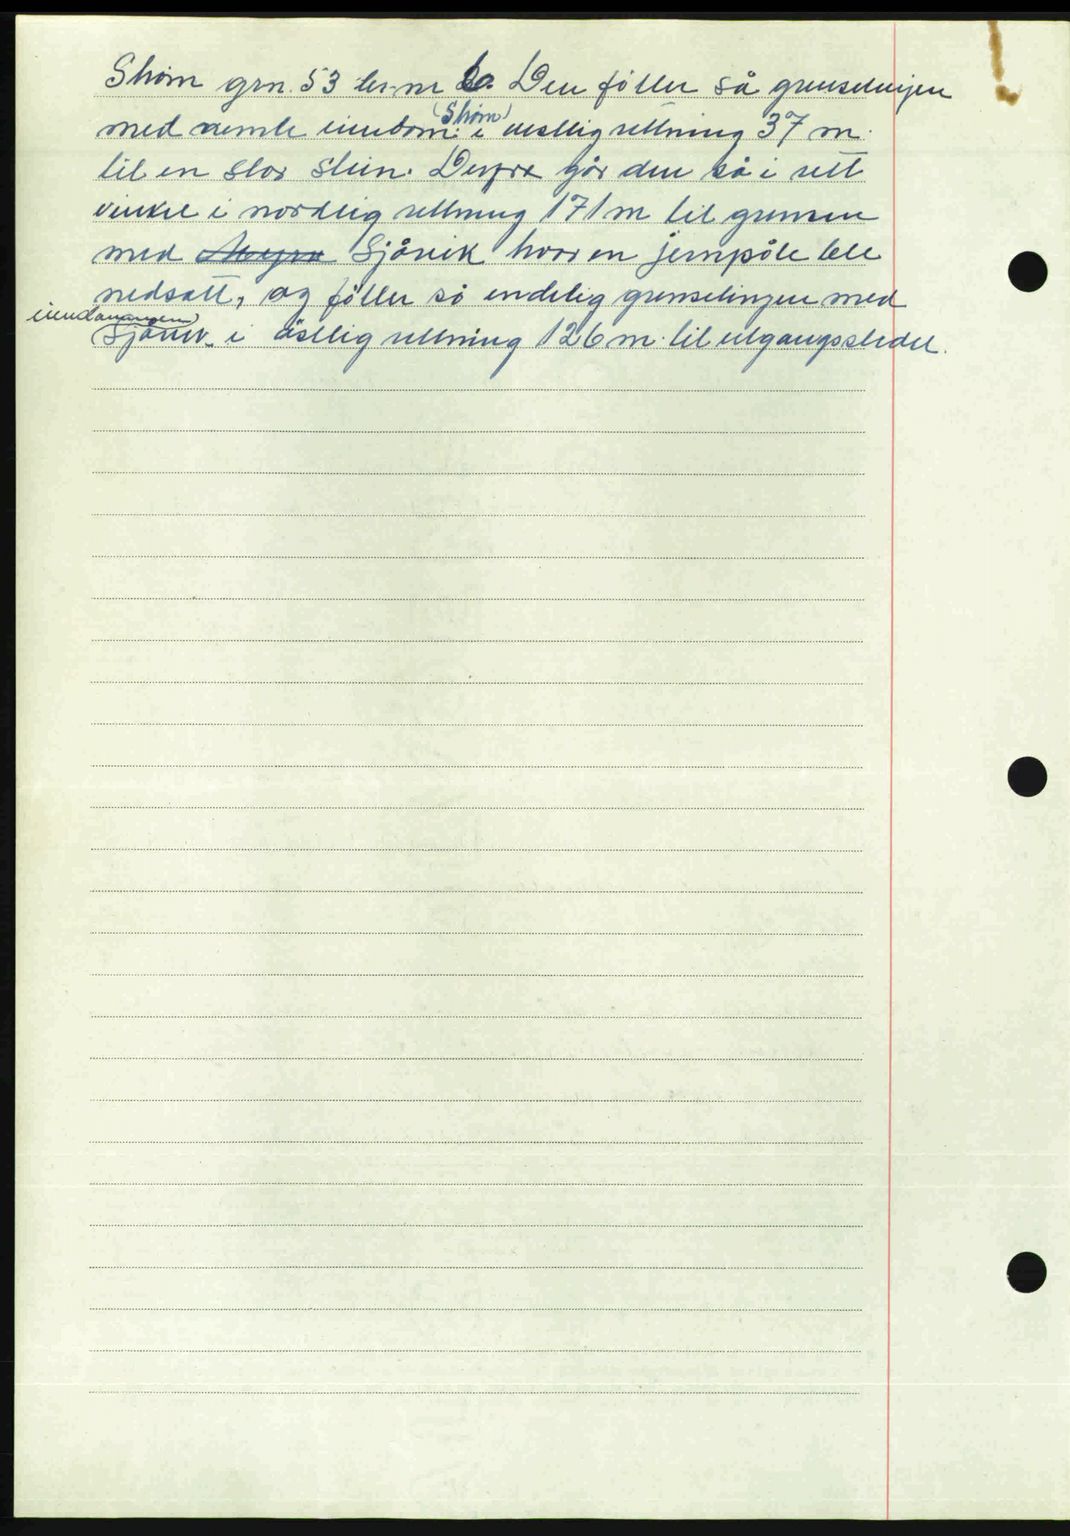 Strøm grn. 53 br.nr 6. Den föller så grenselinjen
med nemte eiendom (Strøm) i vestlig rettning 37 m.
til en stor stein. Derfra går den så i rett
vinkel i nordlig rettning 171 m til grensen
med Sjåvik hvor en jernpåle ble
nedsatt, og föller så endelig grenselinjen med
Sjåvik i östlig rettning 126 m. til utgangsstedet.